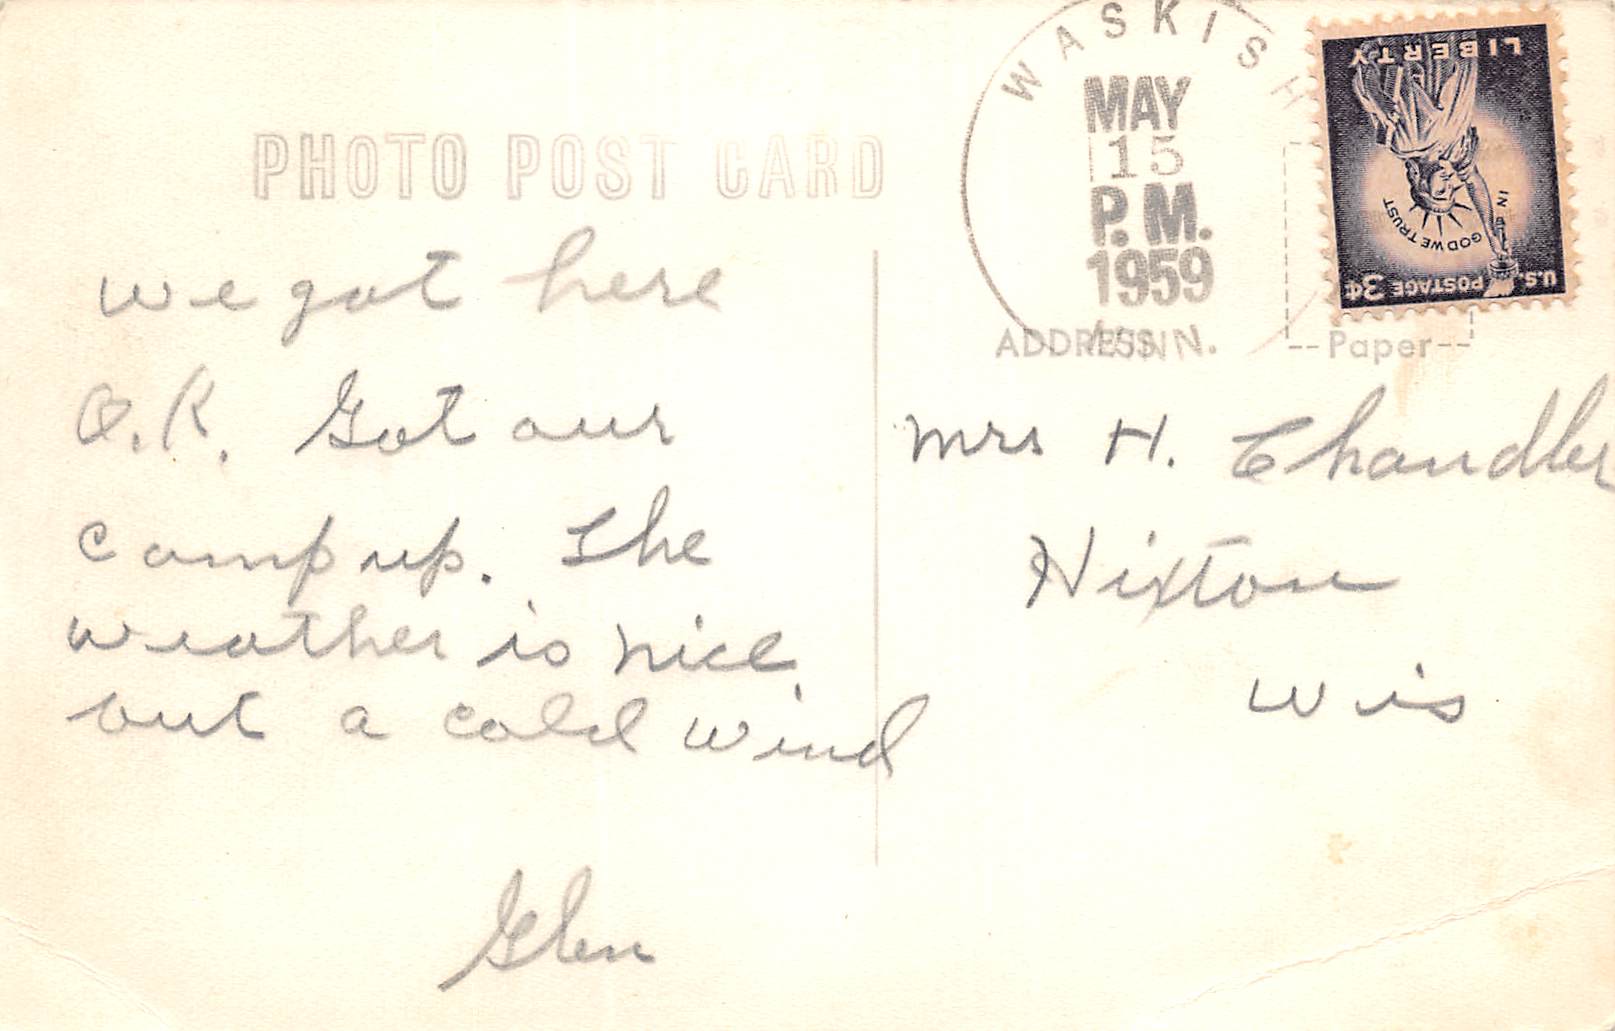 PHOTO POST CARD
WASKISH
MAY
15
P.M.
1959
MINN.
LIBERTY
IN GOD WE TRUST
U.S. POSTAGE 3¢
ADDRESS
--Paper--
we got here
O.K. Got our
camp up. The
weather is nice
but a cold wind
Glen
Mrs H. Chandler
Hixton
Wis